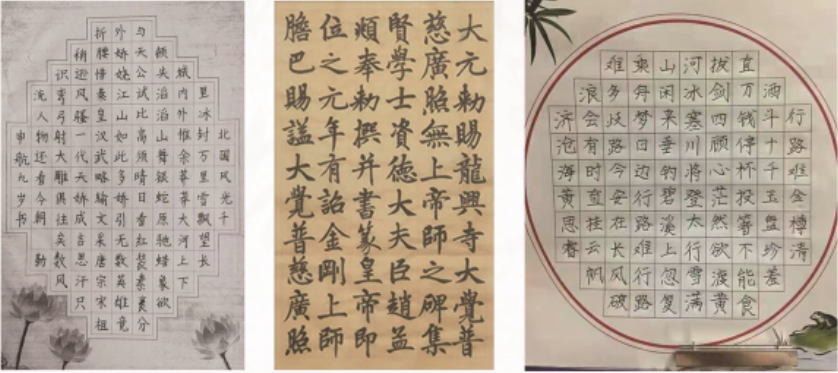 北国风光千
里冰封万里雪飘望长
城内外惟余莽莽大河上下
顿失滔滔山舞银蛇原驰蜡象欲
与天公试比高须晴日看红装素裹分
外娇娆江山如此多娇引无数英雄竞
折腰惜秦皇汉武略输文采唐宗宋祖
稍逊风骚一代天骄成吉思汗只
识弯弓射大雕俱往矣数风
流人物还看今朝 勤
申航九岁书
大元勅賜龍興寺大覺普
慈廣照無上帝師之碑集
賢學士資德大夫臣趙孟
頫奉勅撰并書篆皇帝即
位之元年有詔金剛上師
膽巴賜謚大覺普慈廣照
行路难金樽清
酒斗十千玉盘珍羞
直万钱停杯投箸不能食
拔剑四顾心茫然欲渡黄
河冰塞川将登太行雪满
山闲来垂钓碧溪上忽复
乘舟梦日边行路难行路
难多歧路今安在长风破
浪会有时直挂云帆
济沧海黄思睿